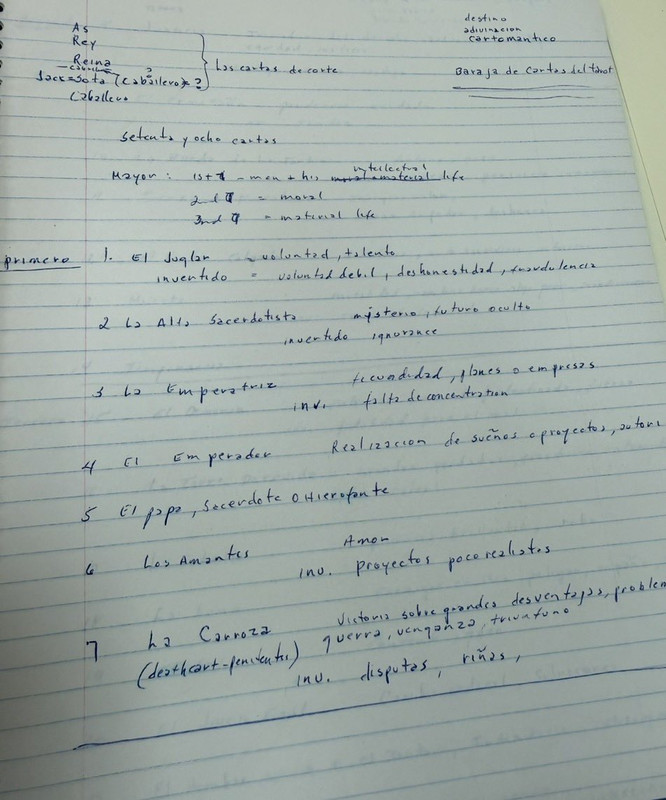 destino
adivinacion
cartomántico
Baraja de Cartas del tarot
As
Rey
Reina
Jack=Sota (Caballero)? ?
Caballero
Las cartas de corte
Setenta y ocho cartas
intelectual
Mayor: 1st 7 - men + his moral + material life
2nd 7 = moral
3nd 7 = material life
primero
1. El Juglar = voluntad, talento
invertido = voluntad debil, deshonestidad, fraudulencia
2 La Alta Sacerdotista misterio, futuro oculto
invertido ignorance
3 La Emperatriz fecundidad, planes o empresas
inv. falta de concentration
4 El Emperador Realizacion de sueños o proyectos, autori
5 El papa, Sacerdote o Hierofante
6 Los Amantes Amor
inv. proyectos poco realistas
7 La Carroza Victoria sobre grandes desventajas, problem
(deathcart-penitentes) guerra, venganza, triunfo
inv. disputas, riñas,